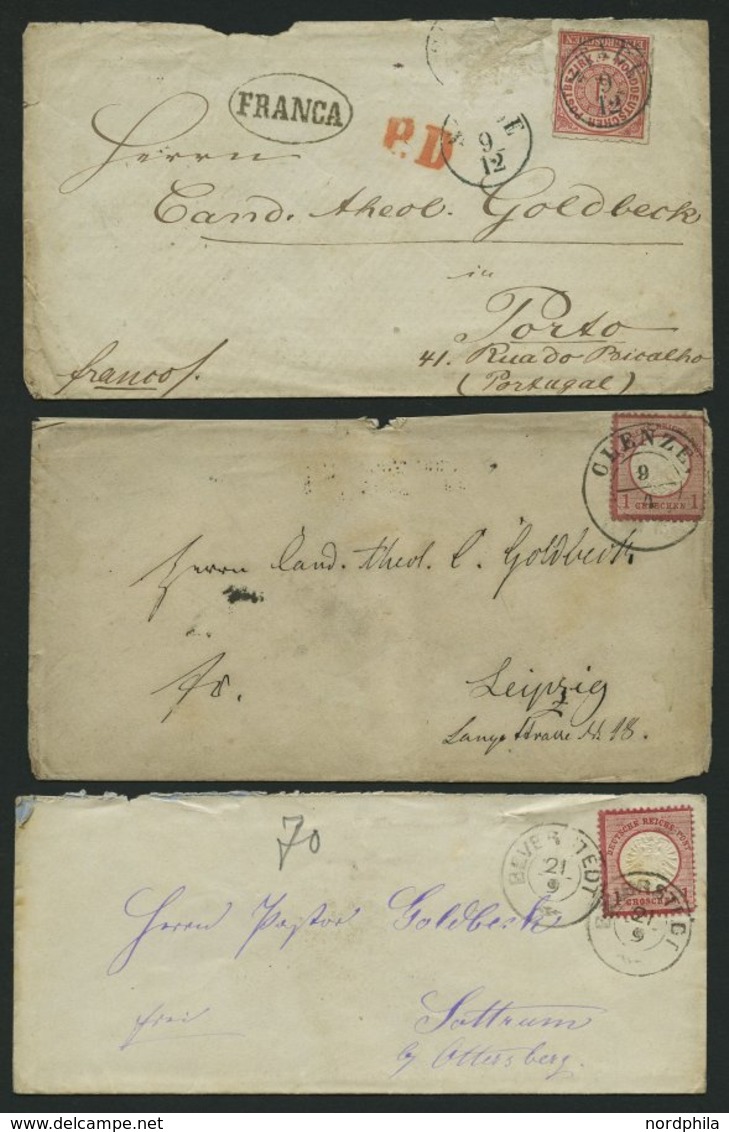 FRANCA
P.D
9
12
NORDDEUTSCHER POSTBEZIRK
EIN GROSCHEN
9
12
Herrn
Cand. theol. Goldbeck
in
Porto
41. Rua do Bicalho
(Portugal)
franco/.
CLENZE
9
1 GROSCHEN 1
Herrn Cand. theol. C. Goldbeck.
Leipzig
Lange Strasse No. 18.
70
BEVERSTEDT
21
9
DEUTSCHE REICHS-POST
GROSCHEN
21
9
Herrn Pastor Goldbeck
frei
Sottrum
by Ottersberg.
www.nordphila.de